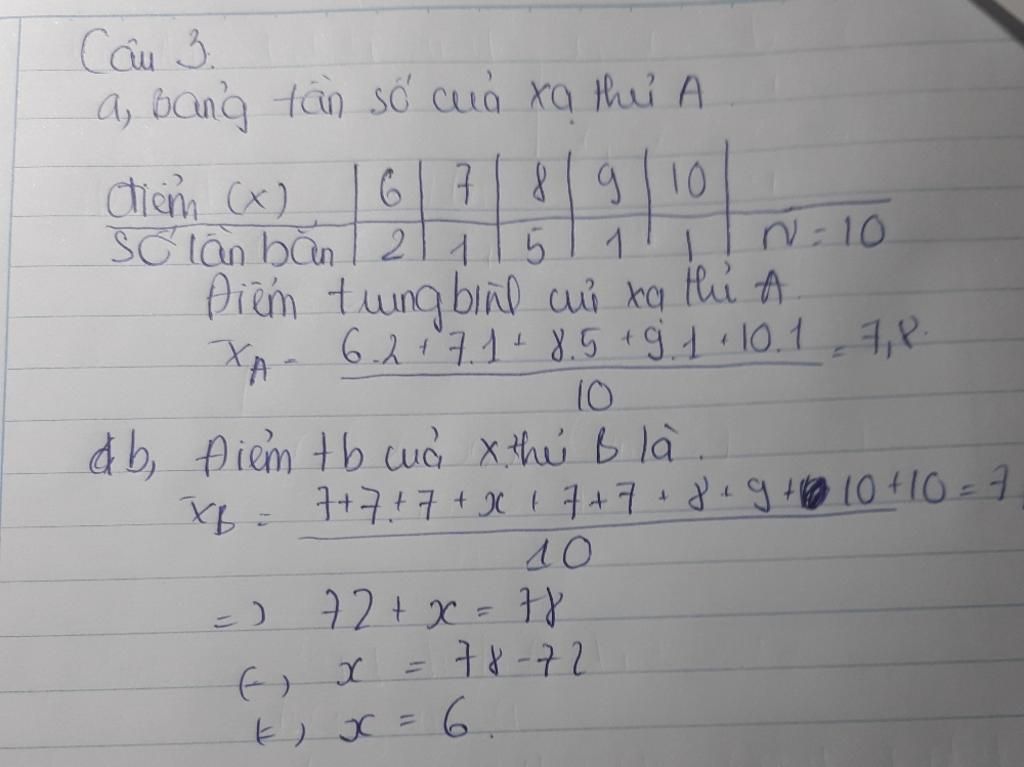 Câu 3.
a, bảng tần số của xạ thủ A
điểm (x) 6 7 8 9 10
Số lần bắn 2 1 5 1 1 N = 10
Điểm trung bình củ xạ thủ A
x̄A = 6.2 + 7.1 + 8.5 + 9.1 + 10.1 = 7,8.
10
b, Điểm tb của x.thủ B là.
x̄B = 7+7+7+x+7+7+8+9+10+10 = 7,
10
=> 72 + x = 78
(=) x = 78-72
(=) x = 6.